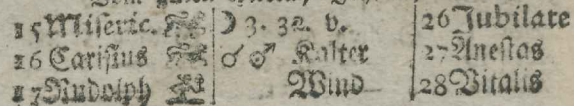 15 Miseric. ☽ 3. 32. v. 26 Jubilate
16 Carisius ☌ ♂ Kalter 27 Anestas
17 Rudolph Wind 28 Vitalis